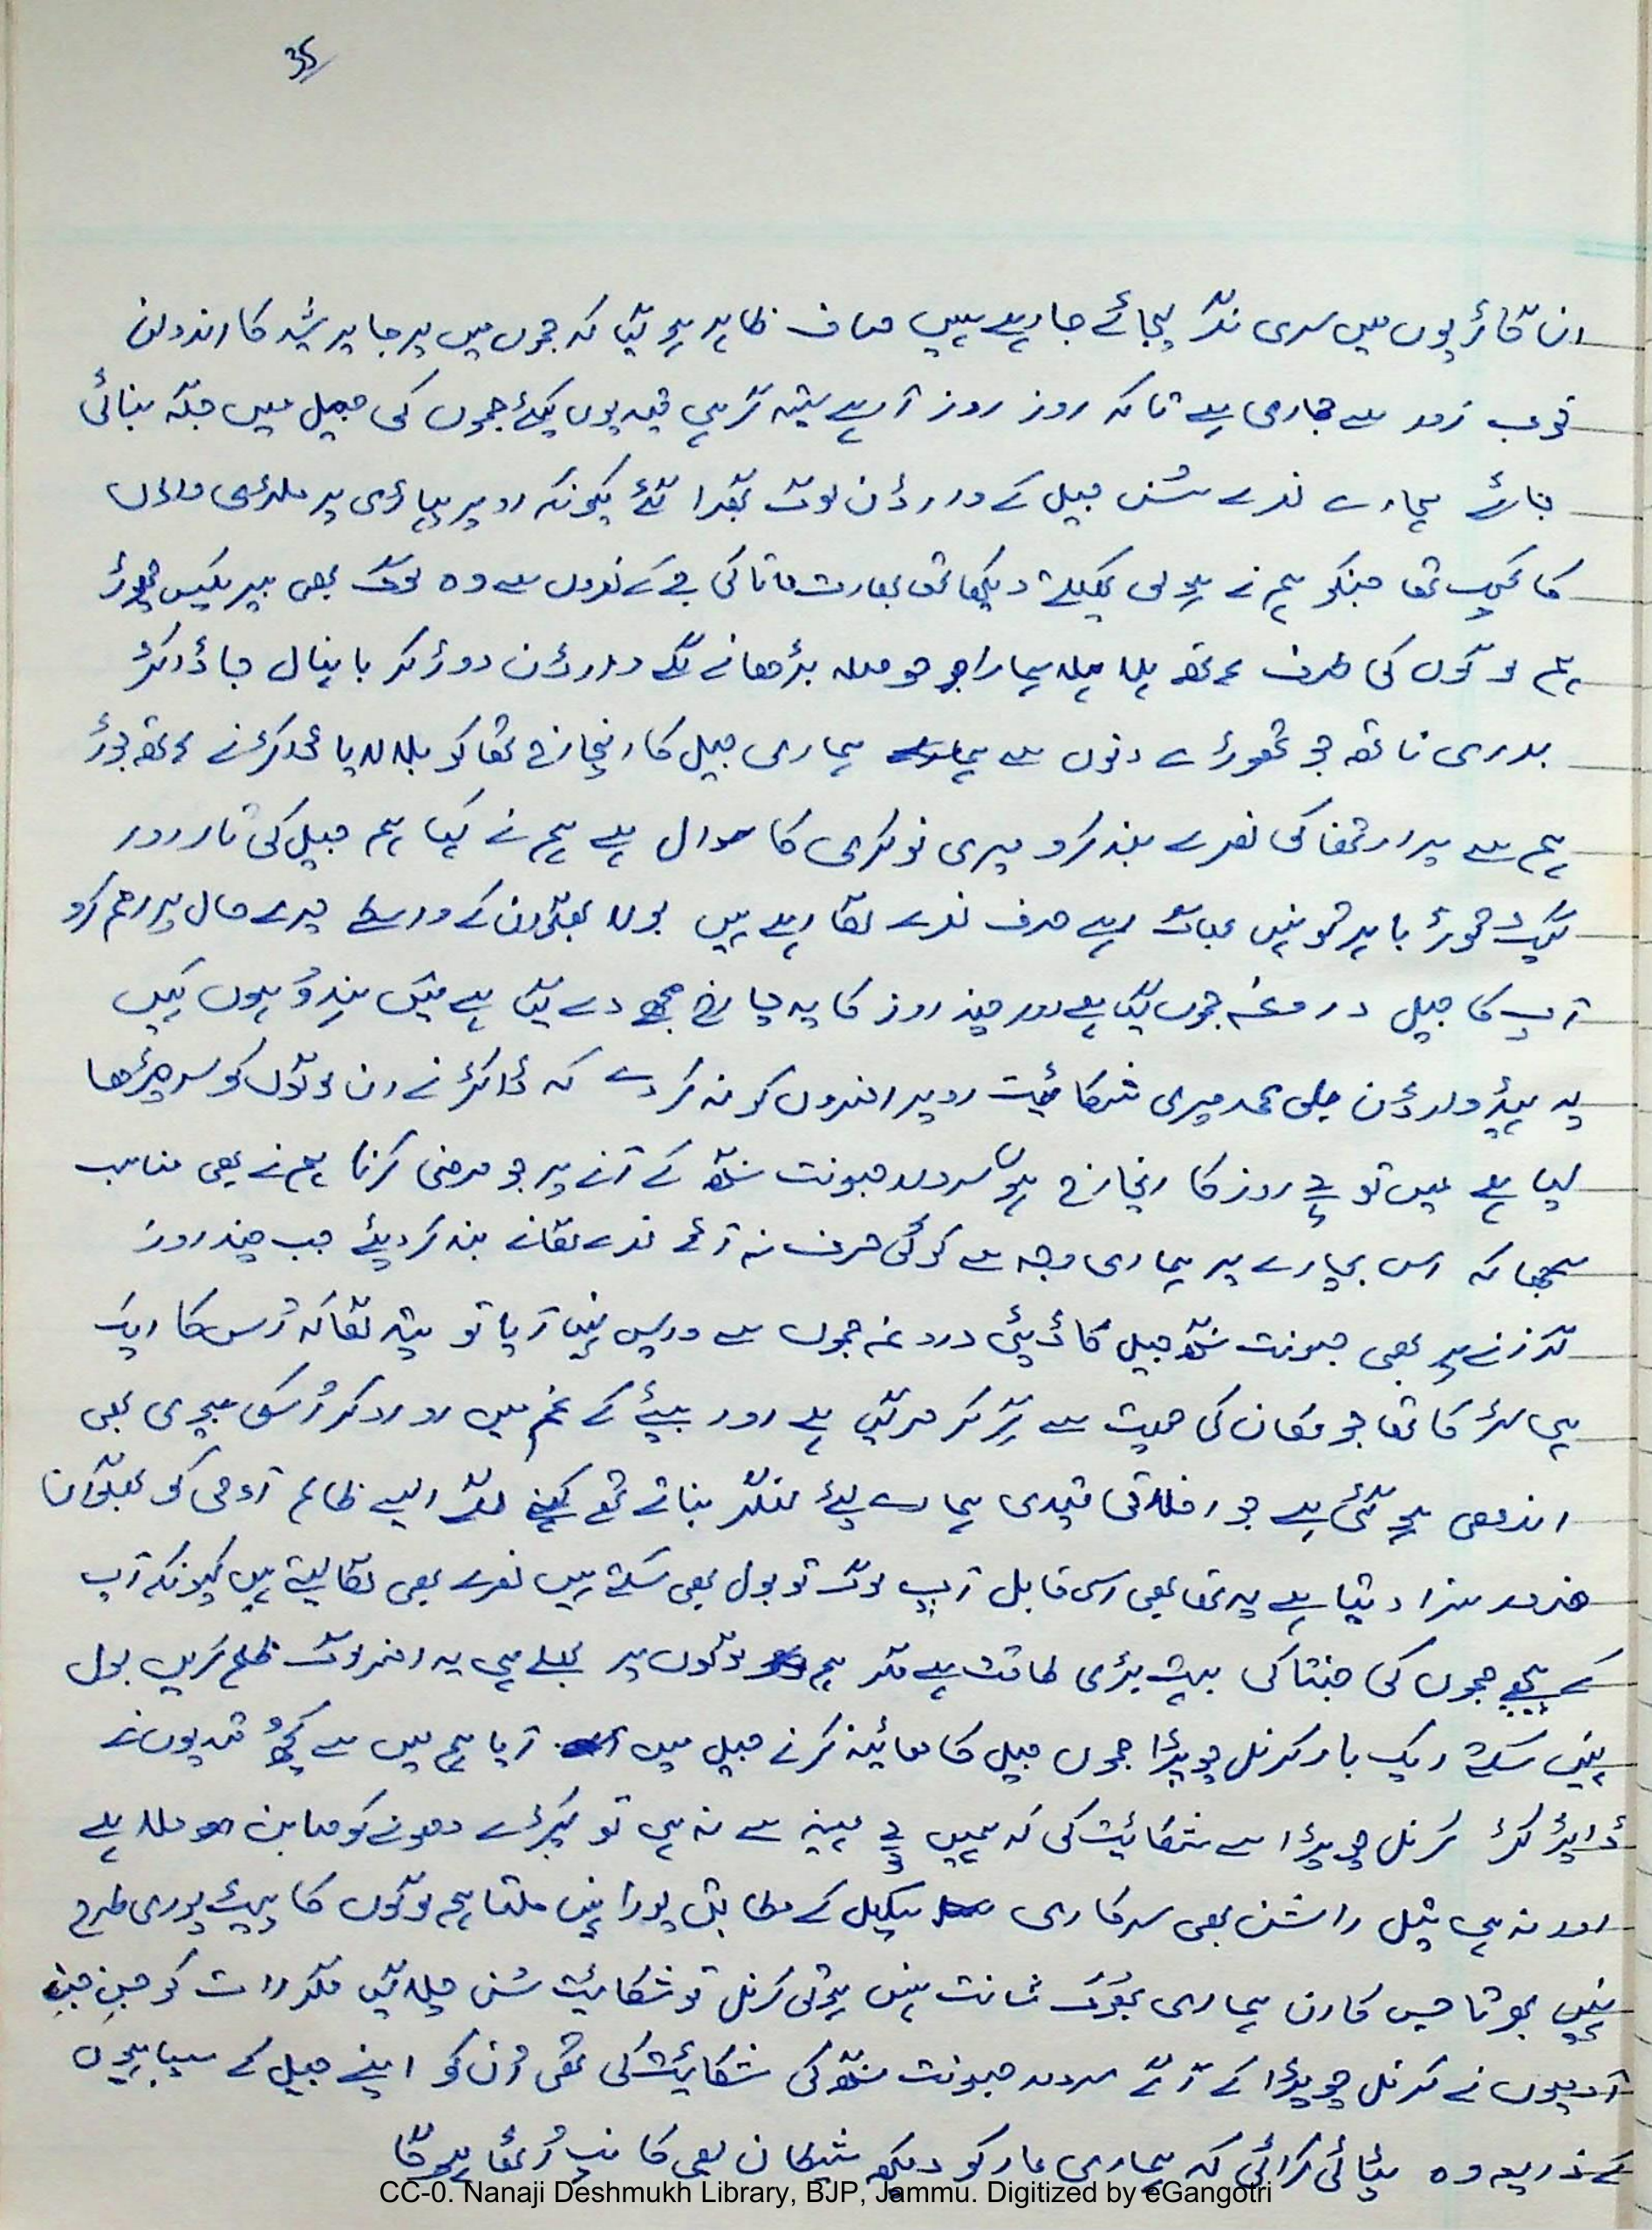 35
ان گاڑیوں میں سری نگر لیجائے جا رہے ہیں صاف ظاہر ہو گیا کہ جموں میں پرجا پریشد کا اندولن
خوب زور سے جاری ہے تاکہ روز روز آ رہے ستیہ گرہی قیدیوں کیلئے جموں کی جیل میں جگہ بنائی
جائے ہمارے نعرے سُنں جیل کے وارڈن لوگ گھبرا گئے کیونکہ اوپر پہاڑی پر ملٹری والوں
کا کیمپ تھا جنکو ہم نے ہولی کھیلتے دیکھا تھا بھارت ماتا کی جے کے نعروں سے وہ لوگ بھی بیریکیں چھوڑ
ہم لوگوں کی طرف ہاتھ ہلا ہلا ہمارا حوصلہ بڑھانے لگے وارڈن دوڑ کر با ہنال جا ڈاکٹر
بدری ناتھ جو تھوڑے دنوں سے ہماری جیل کا انچارج تھا کو بلا لایا ڈاکٹر نے ہاتھ جوڑ
ہم سے پرارتھنا کی نعرے بند کرو میری نوکری کا سوال ہے ہم نے کہا ہم جیل کی تار اور
گیٹ توڑ باہر تو نہیں بھاگ رہے صرف نعرے لگا رہے ہیں بولا بھگوان کے واسطے میرے حال پر رحم کرو
آپ کا جیل دروغہ جموں گیا ہے اور چند روز کا یہ چارج مجھے دے گیا ہے میں ہندو ہوں کہیں
یہ ہیڈ وارڈن علی محمد میری شکائیت اوپر افسروں کو نہ کر دے کہ ڈاکٹر نے ان لوگوں کو سر چڑھا
لیا ہے میں تو دو روز کا انچارج ہوں سردار جسونت سنگھ کے آنے پر جو مرضی کرنا ہم نے بھی مناسب
سمجھا کہ اس بچارے پر ہماری وجہ سے کوئی حرف نہ آئے نعرے لگانے بند کر دیئے جب چند روز
گزرنے پر بھی جسونت سنگھ جیل کا ڈپٹی دروغہ جموں سے واپس نہیں آیا تو پتہ لگا کہ اُس کا ایک
ہی لڑکا تھا جو مکان کی چھت سے گر کر مر گیا ہے اور بیٹے کے غم میں رو رو کر اُسکی بیوی بھی
اندھی ہو گئی ہے جو اخلاقی قیدی ہمارے لیئے لنگر بناتے تھے کہنے لگے ایسے ظالم آدمی کو بھگوان
ضرور سزا دیتا ہے یہ تھا بھی اسی قابل آپ لوگ تو بول بھی سکتے ہیں نعرے بھی لگا لیتے ہیں کیونکہ آپ
کے پیچھے جموں کی جنتا کی بہت بڑی طاقت ہے مگر ہم لوگوں پر بھلے ہی یہ افسر لوگ ظلم کریں بول
نہیں سکتے ایک بار کرنل چوپڑا جموں جیل کا معائینہ کرنے جیل میں آیا ہم میں سے کچھ قیدیوں نے
ڈائریکٹر کرنل چوپڑا سے شکائیت کی کہ ہمیں مہینہ سے نہ ہی تو کپڑے دھونے کو صابن ملا ہے
اور نہ ہی تیل راشن بھی سرکاری سکیل کے مطابق پورا نہیں ملتا ہم لوگوں کا پیٹ پوری طرح
نہیں بھرتا جس کارن ہماری بھوک شانت نہیں ہوتی کرنل تو شکائیت سُن چلا گیا مگر رات کو جن جن
آدمیوں نے کرنل چوپڑا کے آگے سردار جسونت سنگھ کی شکائیت کی تھی اُن کو اپنے جیل کے سپاہیوں
کے ذریعہ وہ پٹائی کرائی کہ ہماری مار کو دیکھ شیطان بھی کانپ اُٹھا ہو گا
CC-0. Nanaji Deshmukh Library, BJP, Jammu. Digitized by eGangotri